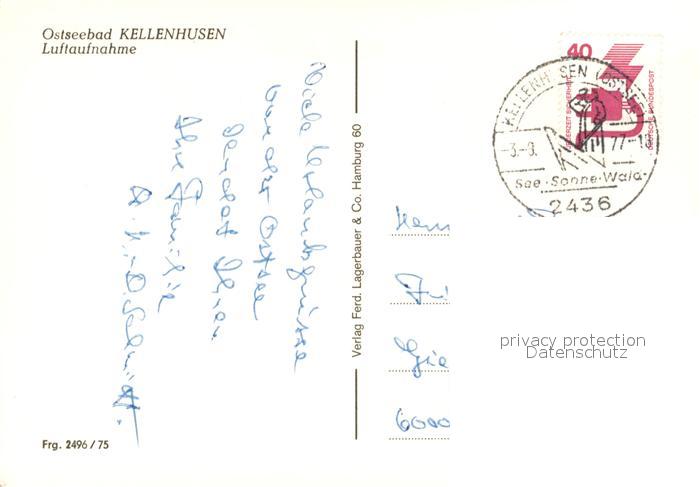 Ostseebad KELLENHUSEN
Luftaufnahme
Viele Urlaubsgrüsse
von der Ostsee
sendet Ihnen
Ihre Familie
Verlag Ferd. Lagerbauer & Co. Hamburg 60
40
JEDERZEIT SICHERHEIT
DEUTSCHE BUNDESPOST
KELLENHUSEN (OSTSEE)
-3.-8. 77-18
See·Sonne·Wald·
2436
Herrn
6000
privacy protection
Datenschutz
Frg. 2496/75